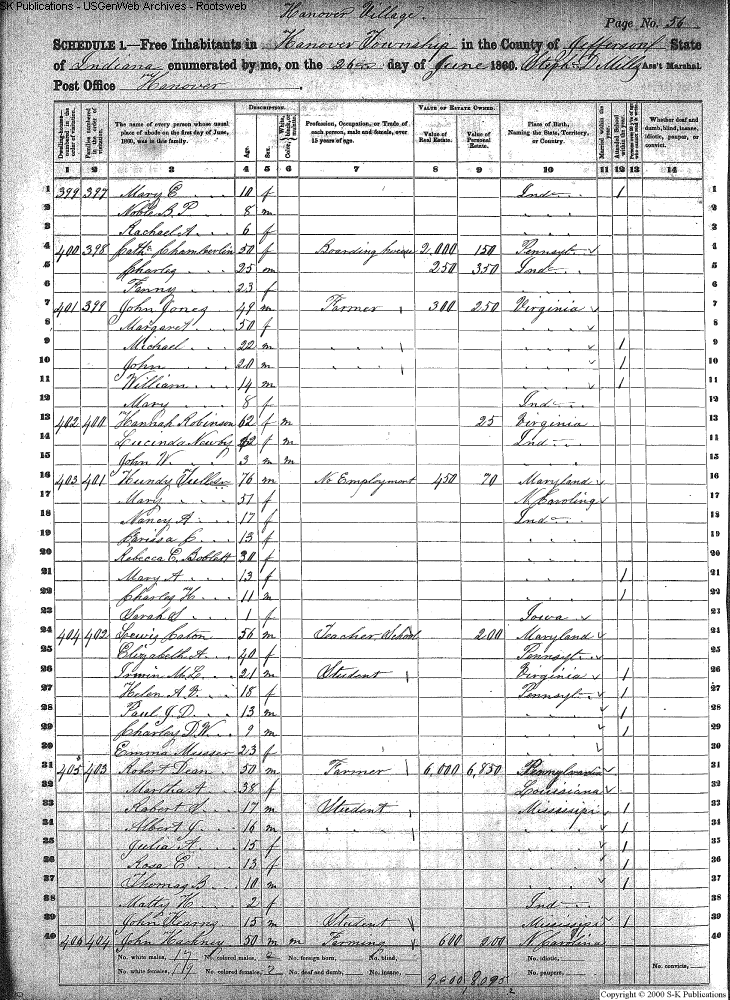 S-K Publications - USGenWeb Archives - Rootsweb
Hanover Village.
Page No. 56
SCHEDULE 1.—Free Inhabitants in Hanover Township in the County of Jefferson State
of Indiana enumerated by me, on the 26 day of June 1860. Ass't Marshal.
Post Office Hanover
Dwelling-houses— numbered in the order of visitation. Families numbered in the order of visitation. The name of every person whose usual place of abode on the first day of June, 1860, was in this family. DESCRIPTION. Age. Sex. Color, White, black, or mulatto. Profession, Occupation, or Trade of each person, male and female, over 15 years of age. VALUE OF ESTATE OWNED. Value of Real Estate. Value of Personal Estate. Place of Birth, Naming the State, Territory, or Country. Married within the year. Attended School within the year. Whether deaf and dumb, blind, insane, idiotic, pauper, or convict.
1 2 3 4 5 6 7 8 9 10 11 12 13 14
1 399 397 Mary E 10 f Ind / 1
2 Noble B. P 8 m 2
3 Rachael A 6 f 3
4 400 398 Cath Chamberlin 50 f Boarding house 2,000 150 Pennsyt 4
5 Charley 25 m 250 350 Ind 5
6 Fanny 23 f 6
7 401 399 John Jones 49 m Farmer 300 250 Virginia 7
8 Margaret 50 f 8
9 Michael 22 m / 9
10 John 20 m / 10
11 William 14 m / 11
12 Mary 8 f Ind 12
13 402 400 Hannah Robinson 62 f m 25 Virginia 13
14 Lucinda Newby f m Ind
15 John W. 3 m m 15
16 403 401 76 m No Employment 450 70 Maryland 16
17 Mary 51 f N Carolina 17
18 Nancy A 17 f Ind 18
19 13 f 19
20 Rebecca C. Boblett 30 f 20
21 Mary A 13 f / 21
22 Charley H 11 m / 22
23 Sarah S 1 f Iowa 23
24 404 402 Lewis Eaton 56 m Teacher School 200 Maryland 24
25 Elizabeth A. 40 f Pennsyt 25
26 Irwin M. L. 21 m Student Virginia / 26
27 Helen A. 18 f Pennsyt / 27
28 Paul J. D. 13 m / 28
29 Charley D. W. 9 m / 29
30 Emma Musser 23 f 30
31 405 403 Robert Dean 50 m Farmer 6,000 6,850 Pennsylvania 31
32 Martha A 38 f Louisiana 32
33 Robert S 17 m Student Mississipi / 33
34 Albert J. 16 m / 34
35 Julia A 15 f / 35
36 Rosa E 13 f / 36
37 Thomas B 10 m / 37
38 Matty H 2 f Ind 38
39 John Kearny 15 m Student Mississipi / 39
40 406 404 John Hackney 50 m m Farming 600 200 N Carolina 40
No. white males, 17 No. colored males, 2 No. foreign born, No. blind, No. idiotic, No. convicts,
No. white females, 19 No. colored females, 2 No. deaf and dumb, No. insane, 9600 8,095 No. paupers,
Copyright © 2000 S-K Publications